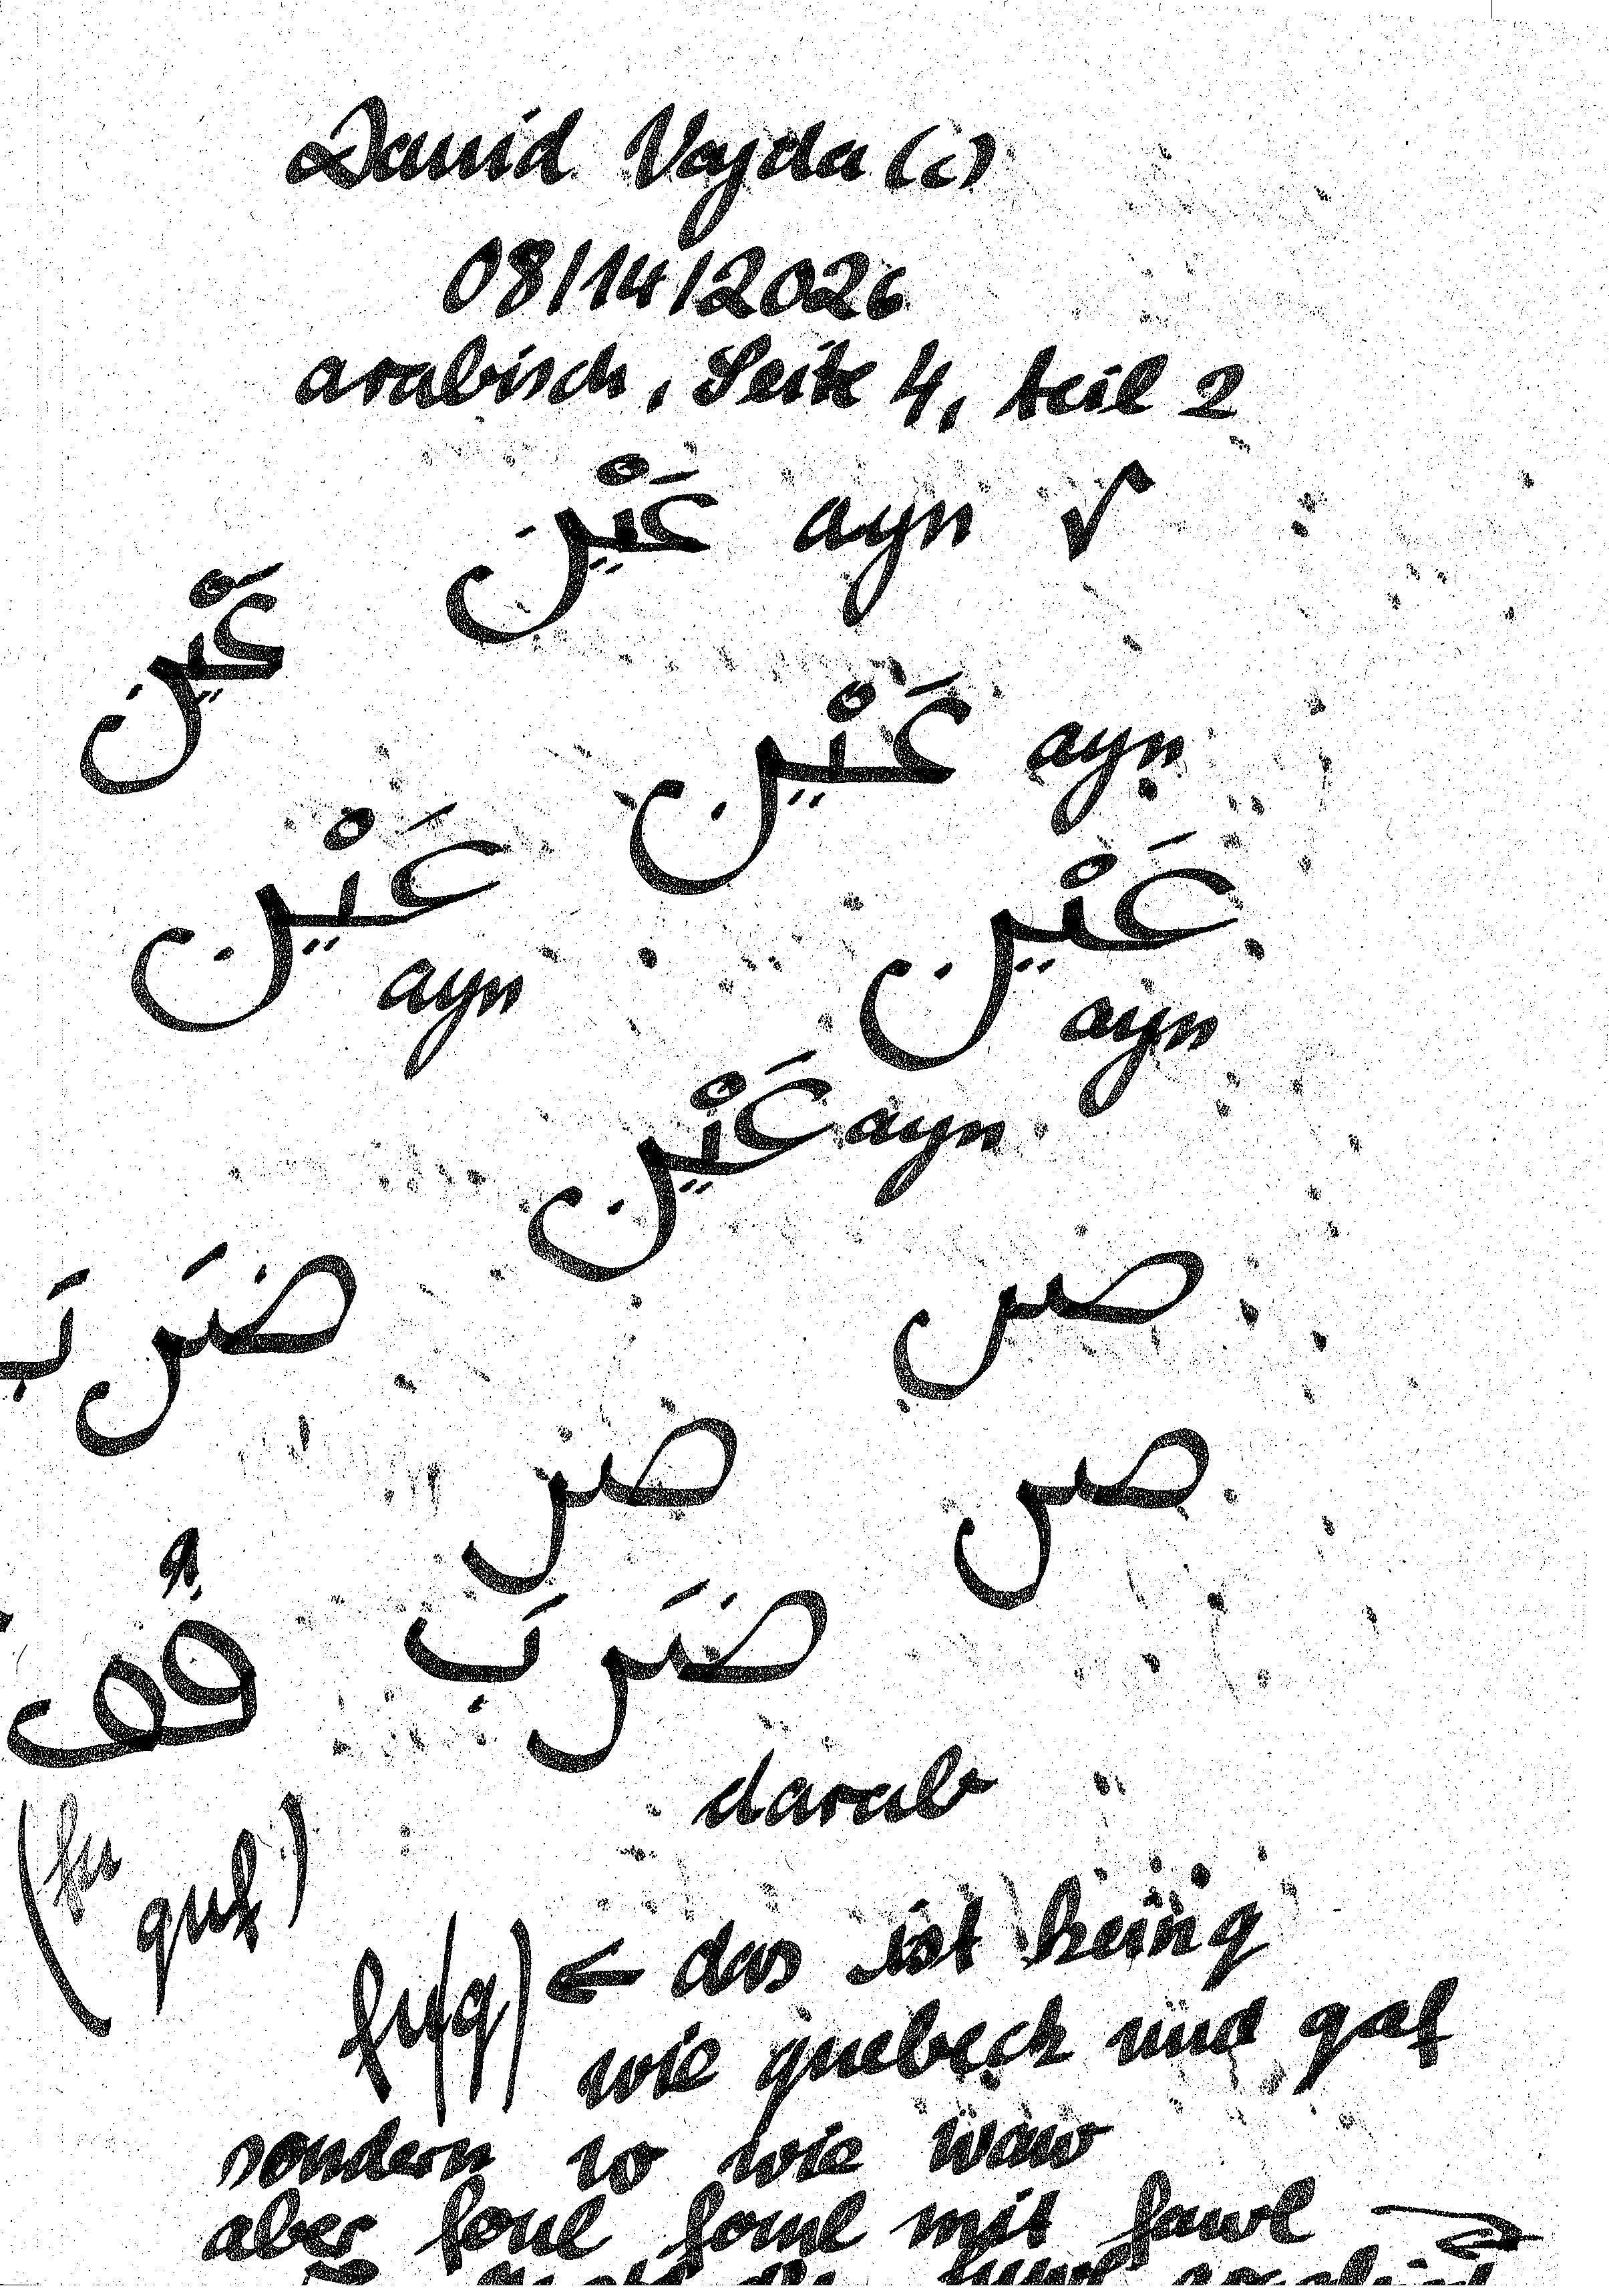 David Vajda (c)
08/14/2026
arabisch, Seite 4, teil 2
عَيْن ayn
عَيْن
عَيْن ayn
عَيْن ayn
عَيْن ayn
عَيْن ayn
ضَرَبَ ض
ضر ص
q
ضَرَبَ
darab
(fu quf)
fu(q) ← das ist kein q
wie quebeck und qaf
sondern w wie waw
aber foul foul mit fawl